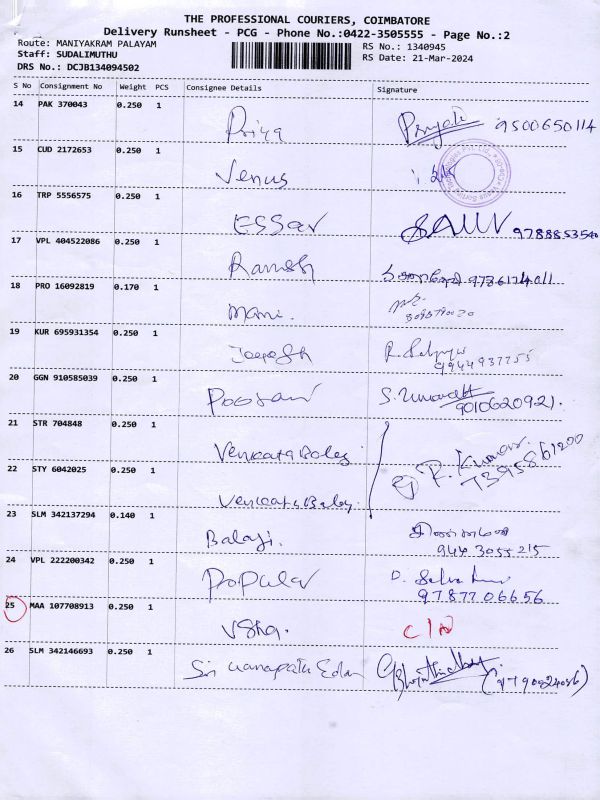 THE PROFESSIONAL COURIERS, COIMBATORE
Delivery Runsheet - PCG - Phone No.:0422-3505555 - Page No.:2
Route: MANIYAKRAM PALAYAM
RS No.: 1340945
Staff: SUDALIMUTHU
RS Date: 21-Mar-2024
DRS No.: DCJB134094502
S No Consignment No Weight PCS Consignee Details Signature
14 PAK 370043 0.250 1 Priya 9500650114
15 CUD 2172653 0.250 1 Venus
16 TRP 5556575 0.250 1 ESSar 9788853540
17 VPL 404522086 0.250 1 Ramesh
18 PRO 16092819 0.170 1 mani.
19 KUR 695931354 0.250 1
20 GGN 910585039 0.250 1 9010620921.
21 STR 704848 0.250 1 Venkata Balaj
R. Kumar
7395861200
22 STY 6042025 0.250 1 Venkata Balaj.
23 SLM 342137294 0.140 1 Balaji.
9443055215
24 VPL 222200342 0.250 1 Popular D.
9787706656
25 MAA 107708913 0.250 1 Usha.
26 SLM 342146693 0.250 1 Sri